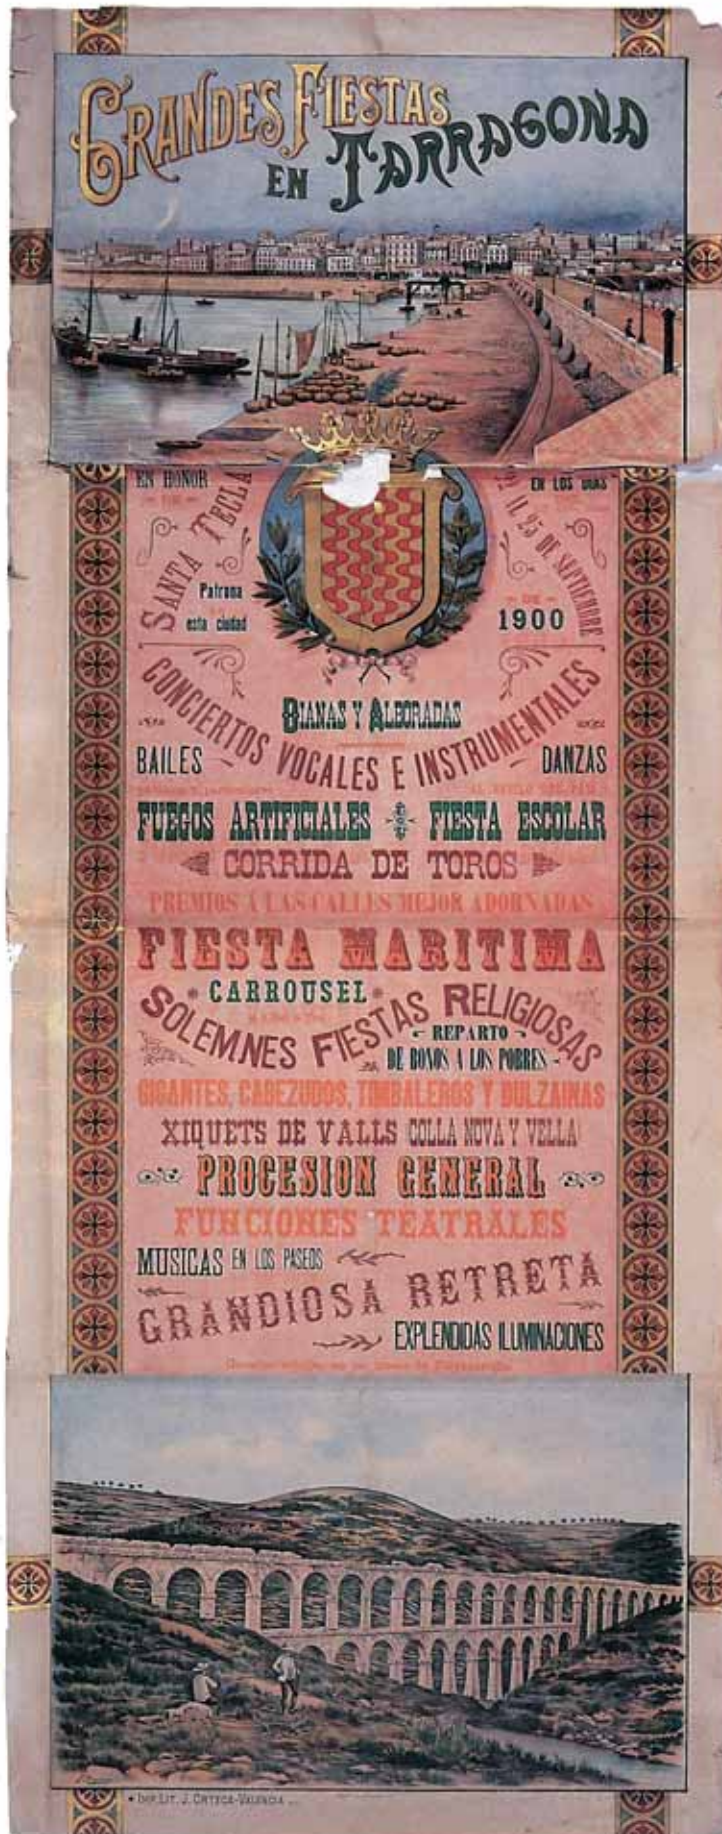 GRANDES FIESTAS
EN TARRAGONA
EN HONOR
DE
SANTA TECLA
Patrona
esta ciudad
EN LOS DIAS
AL 25 DE SEPTIEMBRE
DE
1900
DIANAS Y ALBORADAS
CONCIERTOS VOCALES E INSTRUMENTALES
BAILES
DANZAS
FUEGOS ARTIFICIALES FIESTA ESCOLAR
CORRIDA DE TOROS
PREMIOS A LAS CALLES MEJOR ADORNADAS
FIESTA MARITIMA
CARROUSEL
SOLEMNES FIESTAS RELIGIOSAS
REPARTO
DE BONOS A LOS POBRES
GIGANTES, CABEZUDOS, TIMBALEROS Y DULZAINAS
XIQUETS DE VALLS (COLLA NOVA Y VELLA)
PROCESION GENERAL
FUNCIONES TEATRALES
MUSICAS EN LOS PASEOS
GRANDIOSA RETRETA
EXPLENDIDAS ILUMINACIONES
IMP. LIT. J. ORTEGA-VALENCIA